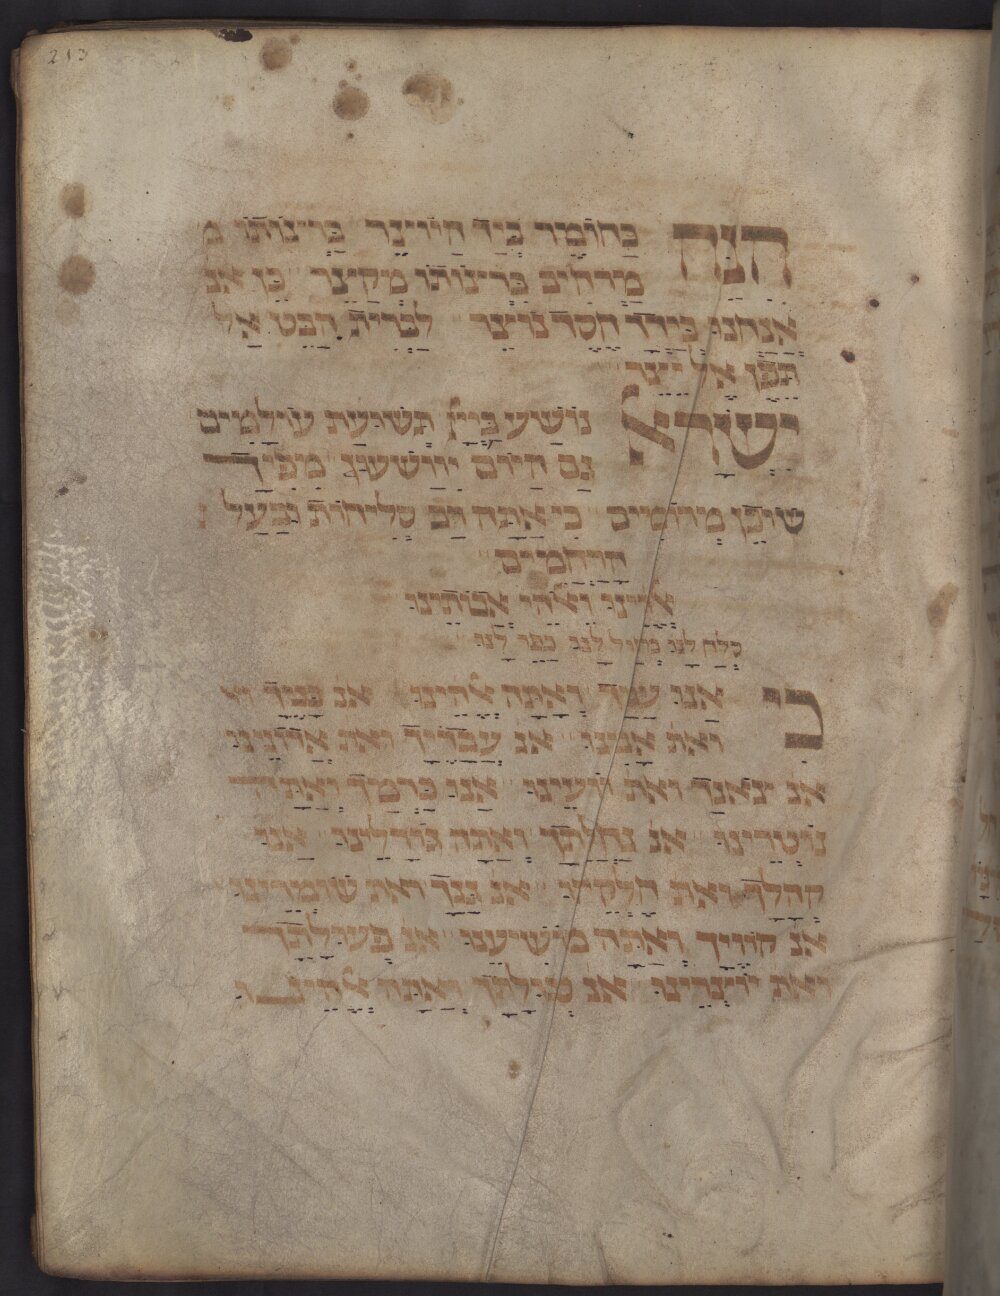 213
הנה כחומר ביד היוצר ברצותו מ
מרחיב ברצותו מקצר כן אנ
אנחנו בידך חסד נוצר לברית הבט אל
תפן אל יצר
ישראל נושע ביי תשועת עולמים
גם היום יוושעו מפיך
שוכן מרומים כי אתה רב סליחות ובעל
הרחמים
ואלהי אבותינו
סלח לנו מחול לנו כפר לנו
כי אנו עמך ואתה אלהינו אנו בניך
ואת אבינו אנו עבדיך ואת אדונינו
אנו צאנך ואת רועינו אנו כרמך ואתה
נוטרינו אנו נחלתך ואתה גורלינו אנו
קהלך ואת חלקינו אנו
אנו קוויך ואתה מושיענו אנו פעולתך
ואת יוצרינו אנו סגולתך ואתה אלהינו